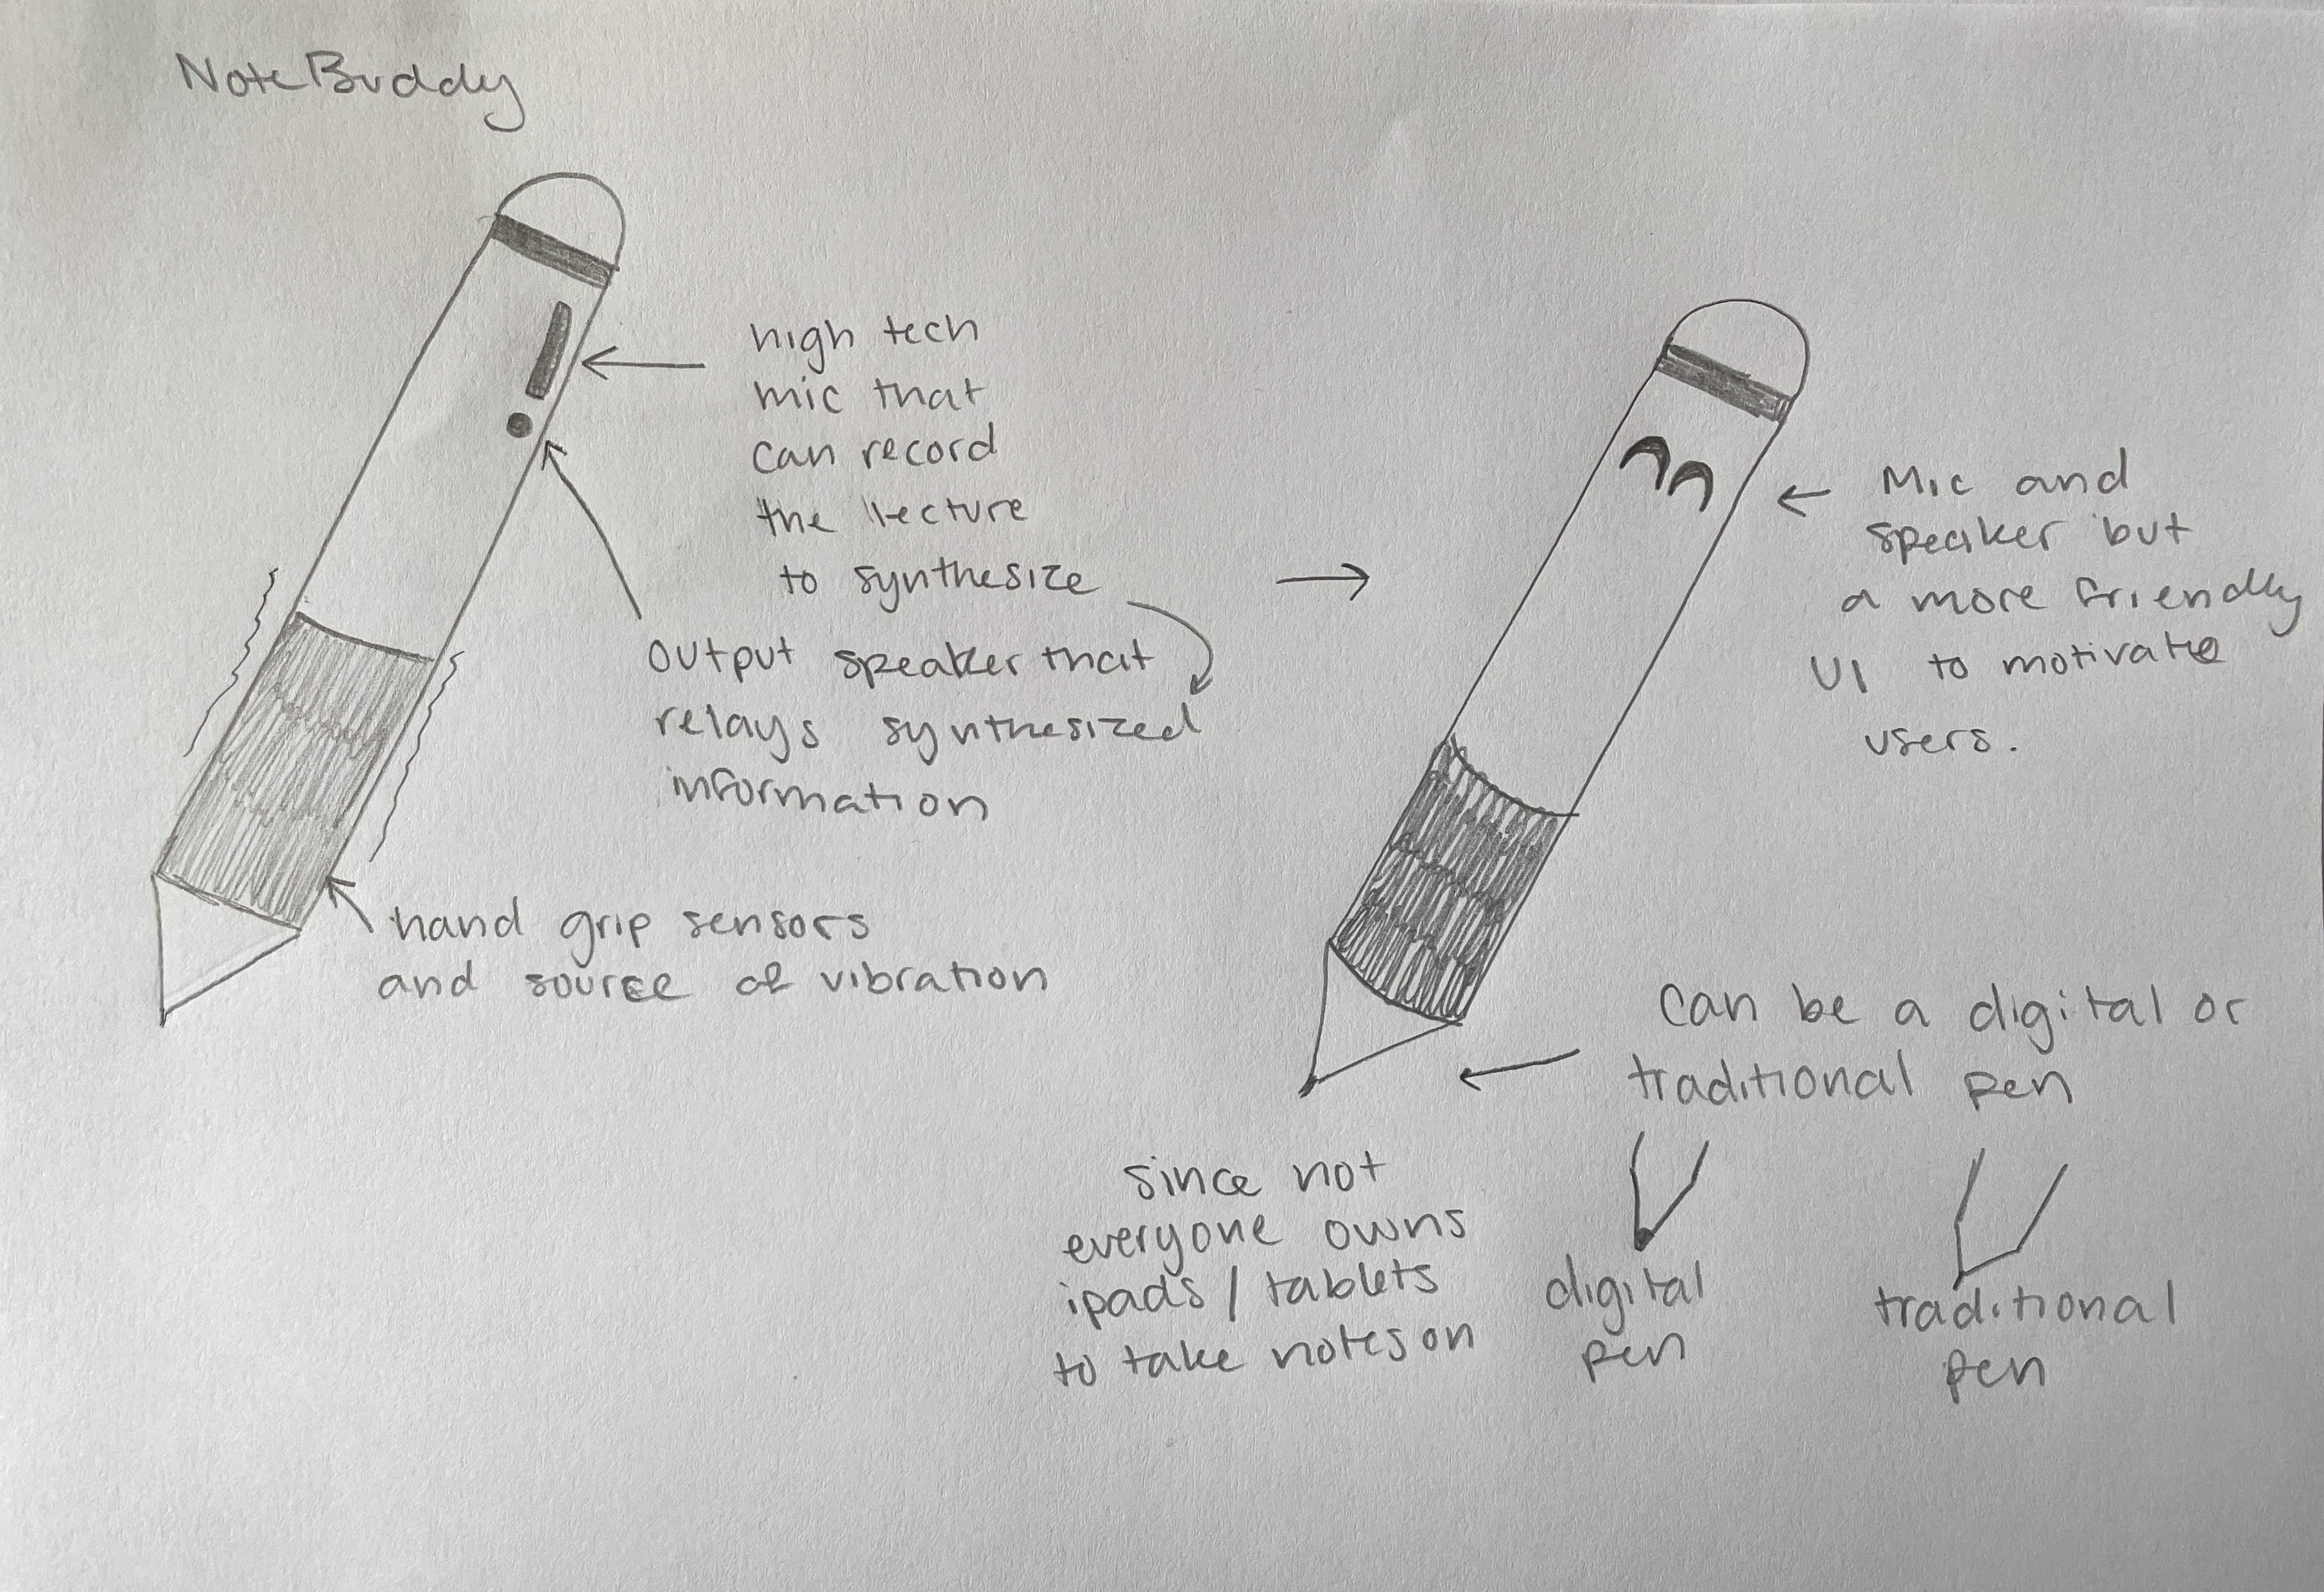 NoteBuddy
high tech
mic that
can record
the lecture
to synthesize
output speaker that
relays synthesized
information
hand grip sensors
and source of vibration
Mic and
speaker but
a more friendly
UI to motivate
users.
can be a digital or
traditional pen
since not
everyone owns
ipads / tablets
to take notes on
digital
pen
traditional
pen